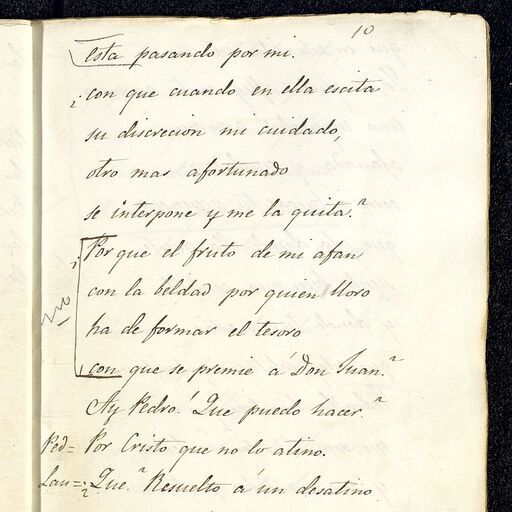 10
esta pasando por mi.
¿con que cuando en ella escita
su discrecion mi cuidado,
otro mas afortunado
se interpone y me la quita?
¿Porque el fruto de mi afan
con la beldad por quien lloro
ha de formar el tesoro
con que se premie á Don Juan?
Ay Pedro! Que puedo hacer?
Ped= Por Cristo que no lo atino.
Lau=¿Que? Resuelto á un desatino